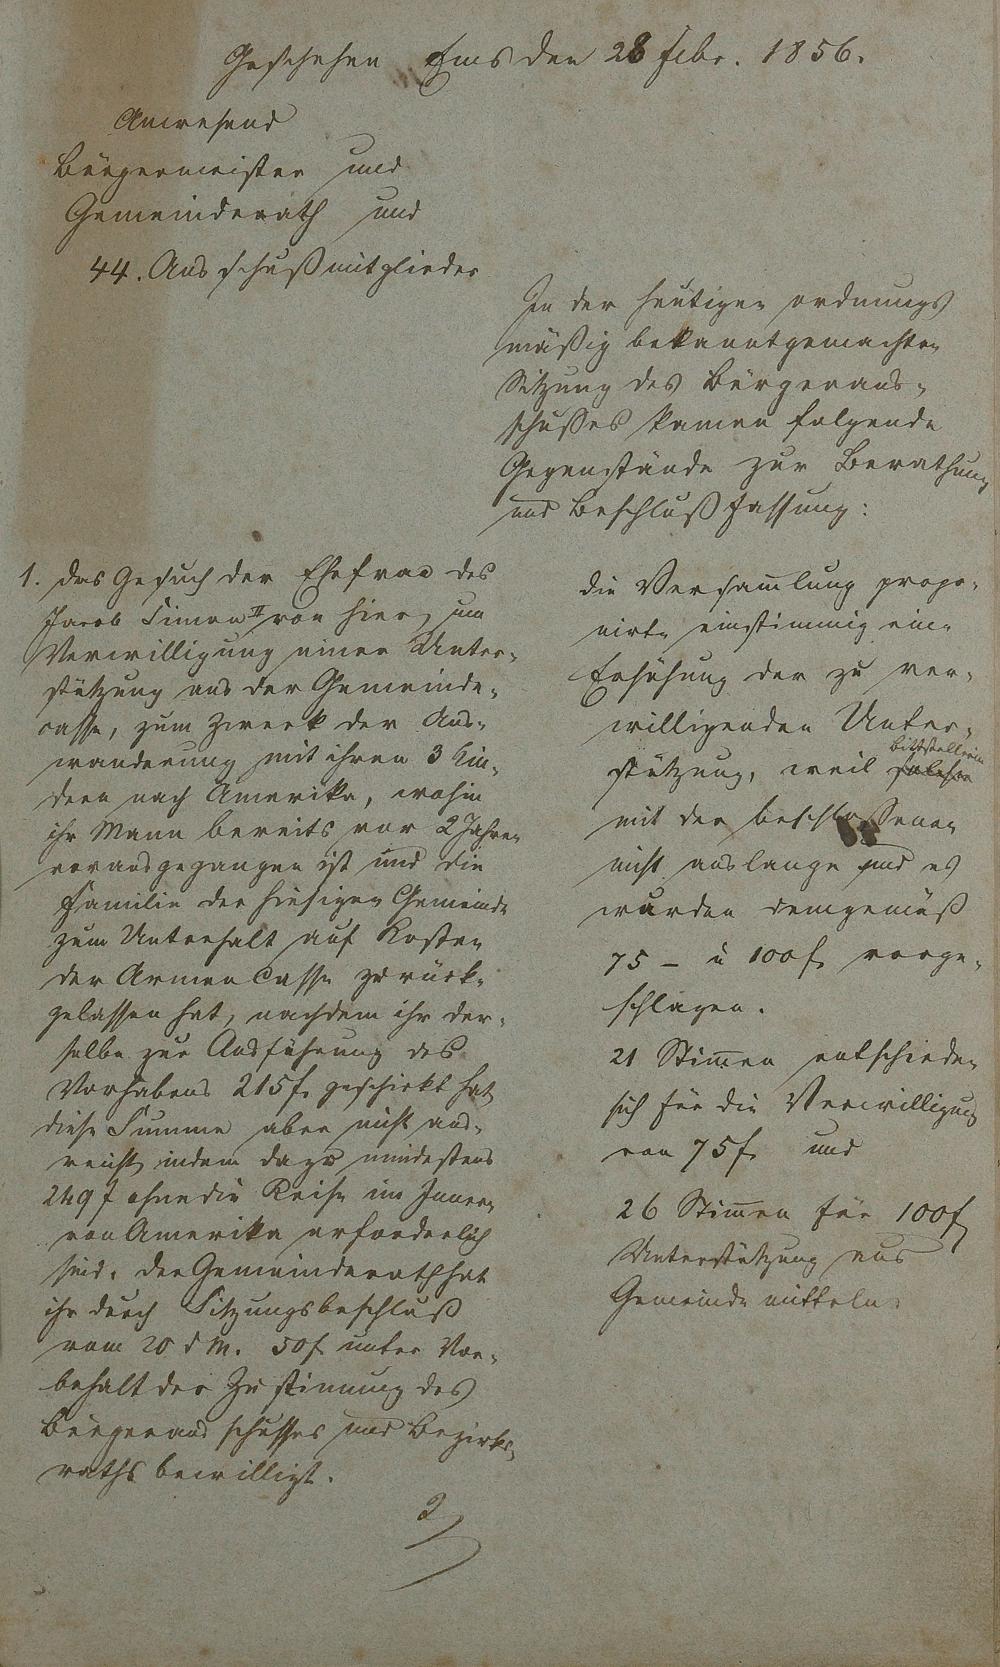 Geschehen Ems den 28 Febr. 1856.
Anwesend
Bürgermeister und
Gemeinderath und
44. Ausschußmitglieder
In der heutigen ordnungs
mäßig bekanntgemachten
Sitzung des Bürgeraus-
schusses kamen folgende
Gegenstände zur Berathung
und Beschlußfassung:
1. Das Gesuch der Ehefrau des
Jacob Simon II von hier, um
Verwilligung einer Unter-
stützung aus der Gemeinde-
casse, zum Zweck der Aus-
wanderung mit ihren 3 Kin-
dern nach Amerika, wohin
ihr Mann bereits vor 2 Jahren
vorausgegangen ist und die
Familie der hiesigen Gemeinde
zum Unterhalt auf Kosten
der Armen Casse zurück-
gelassen hat, nachdem ihr der-
selbe zur Ausführung des
Vorhabens 215 f. geschickt hat,
diese Summe aber nicht aus-
reicht, indem dazu mindestens
249 f ohne die Reise im Innern
von Amerika erforderlich
sind. Der Gemeinderath hat
ihr durch Sitzungsbeschluß
vom 20 d M. 50 f. unter Vor-
behalt der Zustimmung des
Bürgerausschusses und Bezirks-
raths bewilligt.
die Versam̅lung propo-
nirte einstimmig eine
Erhöhung der zu ver-
willigenden Unter-
stützung, weil solche Bittstellerin
mit der beschlossenen
nicht auslange und es
wurden demgemäß
75 – u 100 f. vorge-
schlagen.
21 Stim̅en entschieden
sich für die Verwilligung
von 75 f. und
26 Stim̅en für 100 f
Unterstützung aus
Gemeindemitteln.